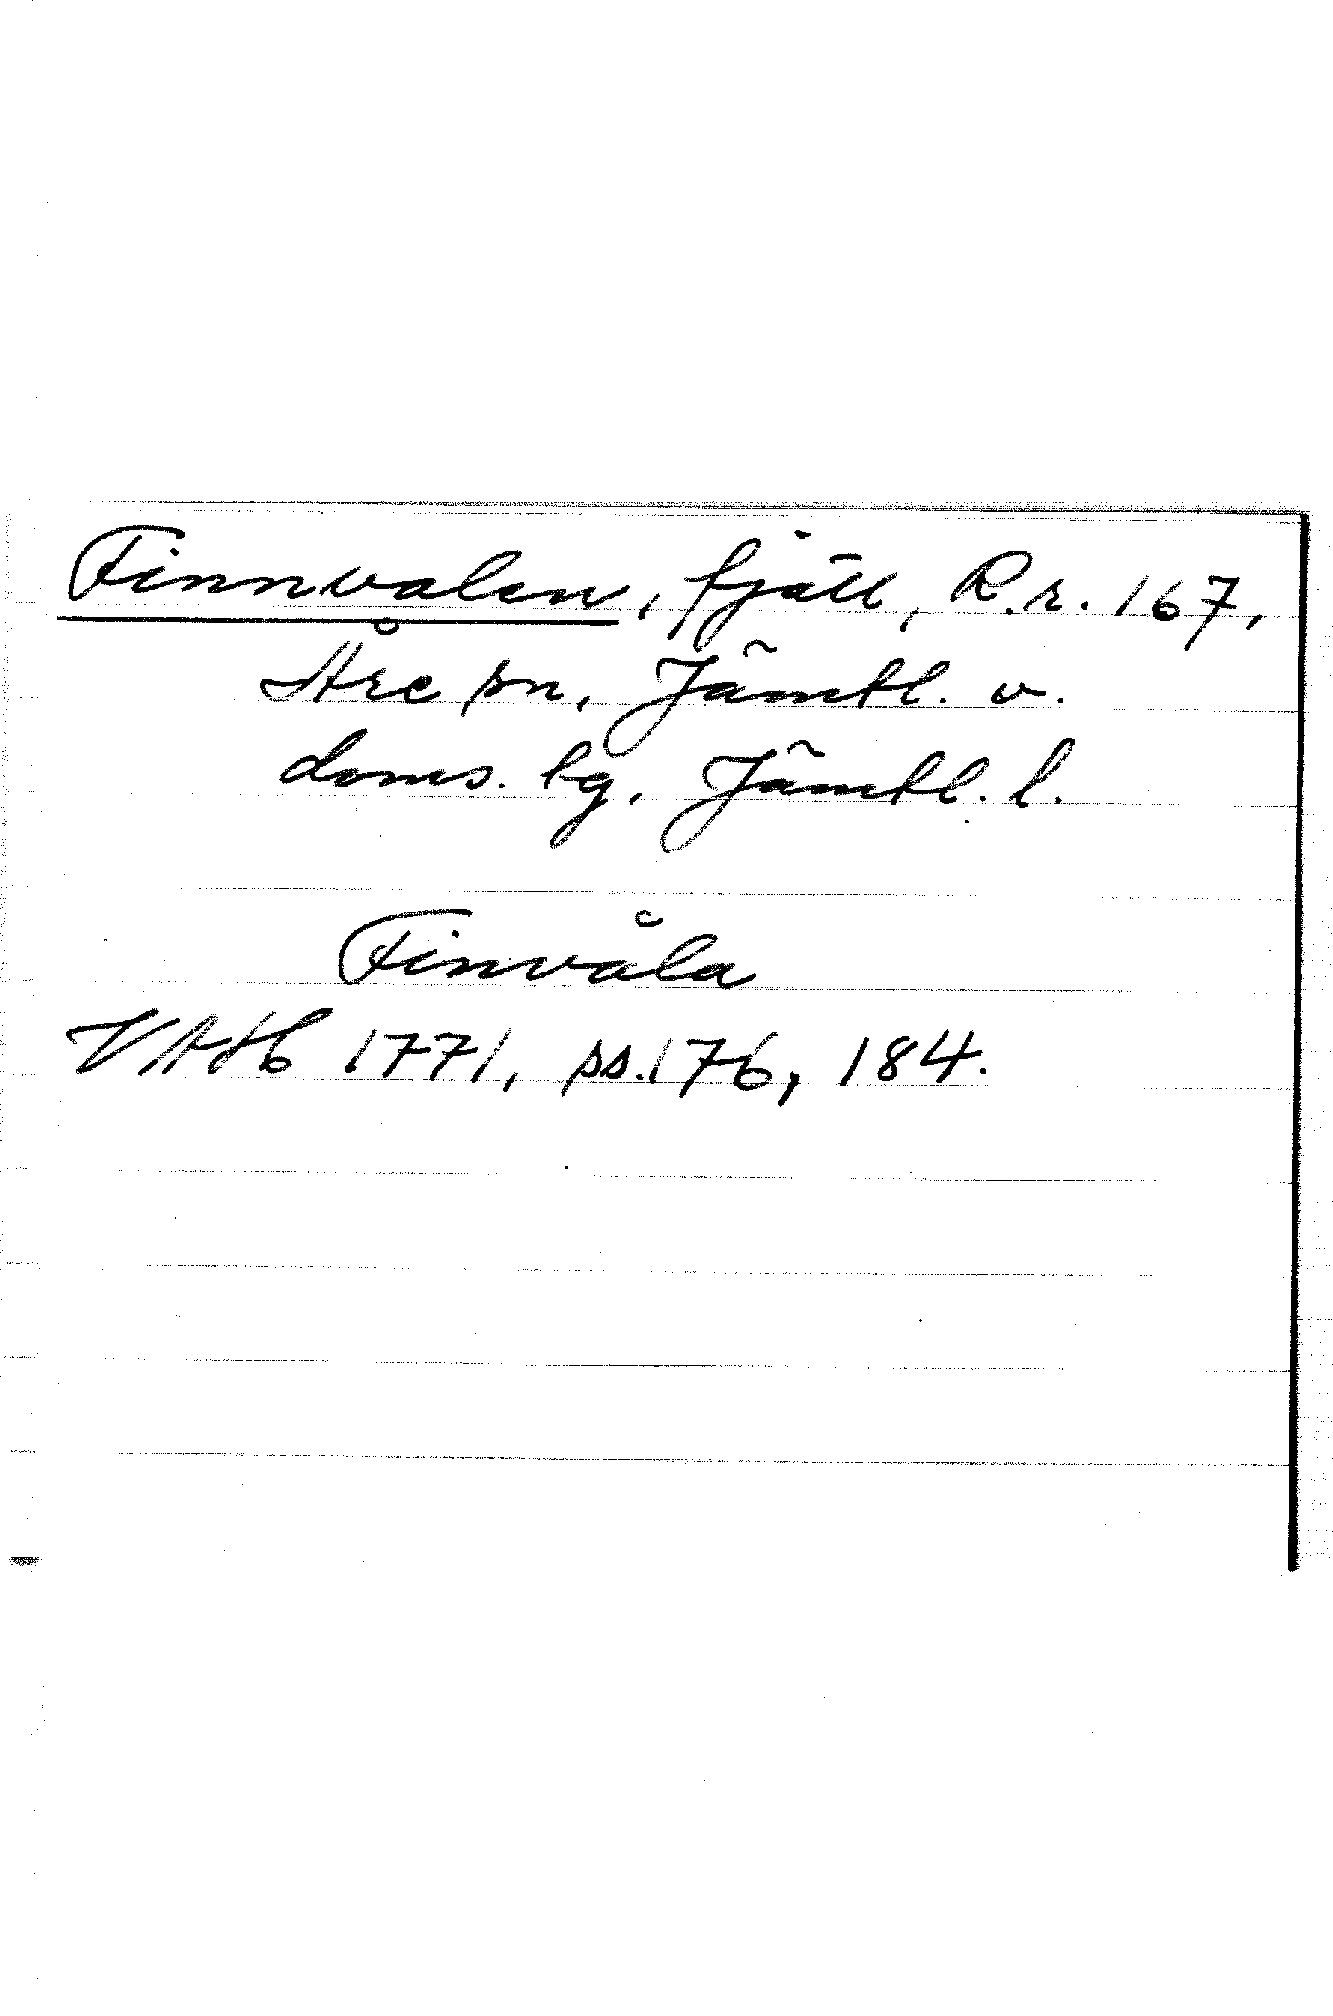 Finnvalen, fjäll, R.r. 167,
Åre sn, Jämtl. v.
doms. tg, Jämtl. l.
Finvåla
VAHb 1771, ss. 176, 184.